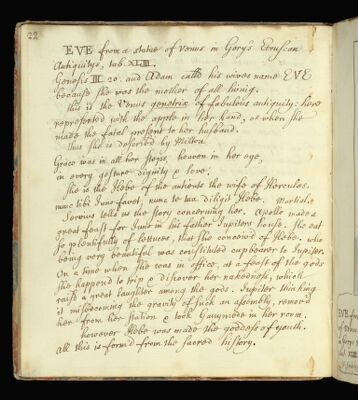 22
EVE from a statue of Venus in Gorys Etruscan
Antiquitys, tab. XLIII.
Genesis III. 20. and Adam calld his wives name EVE
because she was the mother of all living.
this is the Venus genetrix of fabulous antiquity: here
represented with the apple in her hand, as when she
made the fatal present to her husband.
thus she is described by Milton
Grace was in all her steps, heaven in her eye,
in every gesture dignity & love.
She is the Hebe of the antients the wife of Hercules.
nunc tibi Juno favet, nunc te tua diligit Hebe. Martial.
Servius tells us the story concerning her. Apollo made a
great feast for Juno in his father Jupiters house. She eat
so plentifully of lettuces, that she conceived of Hebe. who
being very beautiful was constituted cupbearer to Jupiter.
On a time when she was in office, at a feast of the gods
she happend to trip & discover her nakedness, which
raisd a great laughter among the gods. Jupiter thinking
it misbecoming the gravity of such an assembly, remov'd
her from her station & took Ganymede in her room.
however Hebe was made the goddess of youth.
all this is form'd from the sacred history.